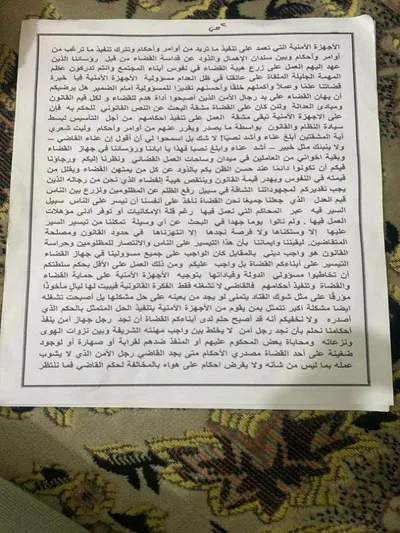 الأجهزة الأمنية التي تعمد على تنفيذ ما تريد من أوامر وأحكام وتترك تنفيذ ما ترغب من
أوامر وأحكام وبين سندان الإهمال والذود عن قداسة القضاء من قبل رؤسائنا الذين
عهد إليهم العمل على زرع هيبة القضاء في نفوس أبناء المجتمع وانتم تدركون عظم
المهمة الجليلة الملقاة على عاتقنا في ظل انعدام مسؤولية الأجهزة الأمنية فيا خيرة
قضاتنا علمًا وعملاً وأكملهم خلقًا وأحسنهم تقديرًا للمسؤولية امام الضمير هل يرضيكم
أن يهان القضاء على يد رجال الأمن الذين أصبحوا أداة هدم للقضاء و لكل قيم القانون
ومبادئ العدالة ولئن كان على القضاة مشقة البحث عن النص القانوني للحكم به فإن
على الاجهزة الأمنية تبقى مشقة العمل على تنفيذ احكامهم من أجل التأسيس لبسط
سيادة النظام والقانون بواسطة ما يصدر ويقرر عنهم من أوامر وأحكام وليت شعري
أية المشقتين أبلغ عناء وأشد نصبًا؟ لا شك بل اسمحوا لي أن أقول إن عناء القاضي –
ولا ينبئك مثل خبير – أشد عناء وابلغ نصبا فهذا يا ابائنا ورؤساءنا في جهاز القضاء
وبقية اخواني من العاملين في ميدان وساحات العمل القضائي ونظرنا إليكم ورجاؤنا
فيكم ان تكونوا دائما عند حسن الظن بكم بالذود عن كل من يمتهن القضاء ويقلل من
قيمته في النفوس ويهدر قيمة القانون وينتقص هيبة القضاء الذي نحن من رجاله الذين
يجب تقديركم لمجهوداتنا الشاقة في سبيل رفع الظلم عن المظلومين ونزرع بين الناس
قيم العدل الذي جعلنا جميعًا نحن القضاة نأخذ على أنفسنا أن نيسر على الناس سبيل
السير فيه عبر المحاكم التي نعمل فيها رغم قلة الإمكانيات أو توفر أدنى مؤهلات
العمل فيها ، ولم نألوا يوما جهدا في البحث عن أي وسيلة تمكننا من تيسير السير
عليها إلا وسلكناها ولا فرصة نجدها إلا انتهزناها في حدود القانون ومصلحة
المتقاضين، ليقيننا وإيماننا بأن هذا التيسير على الناس والانتصار للمظلومين وحراسة
القانون هو واجب ديني بالمقابل كان الواجب على جميع مسؤولينا في جهاز القضاء
التيسير على أبناءكم القضاة بل واجب عليكم ومن ذلك العمل على الأقل بحكم سلطتكم
أن تخاطبوا مسؤولي الدولة وقياداتها بتوجيه الأجهزة الأمنية على حماية القضاء
والقضاة وتنفيذ أحكامهم فالقاضي لا تشغله فقط الفكرة القانونية فيبيت لها ليال مأخوذًا
مؤرقًا على مثل شوك القتاد يتمنى لو يجد من يعينه على حل مشكلتها بل أصبحت تشغله
ايضا مشكلة اكبر تتمثل بمن يقوم من الأجهزة الأمنية بتنفيذ الحل المتمثل بالحكم الذي
أصدره ولا نخفيكم أنه قد أصبح حلم لدى أبناءكم القضاة أن نجد رجل جهاز أمن ينفذ
أحكامنا نحلم بأن نجد رجل أمن لا يخلط بين واجب مهنته الشريفة وبين نزوات الهوى
ونزعاته ومحاباة بعض المحكوم عليهم أو المنفذ ضدهم لقرابة أو صهارة أو لوجود
ضغينة على أحد القضاة مصدري الأحكام متى يجد القاضي رجل الأمن الذي لا يشوب
عمله بما ليس من شأنه ولا يفرض احكام على هواه بالمخالفة لحكم القاضي فما ننتظر